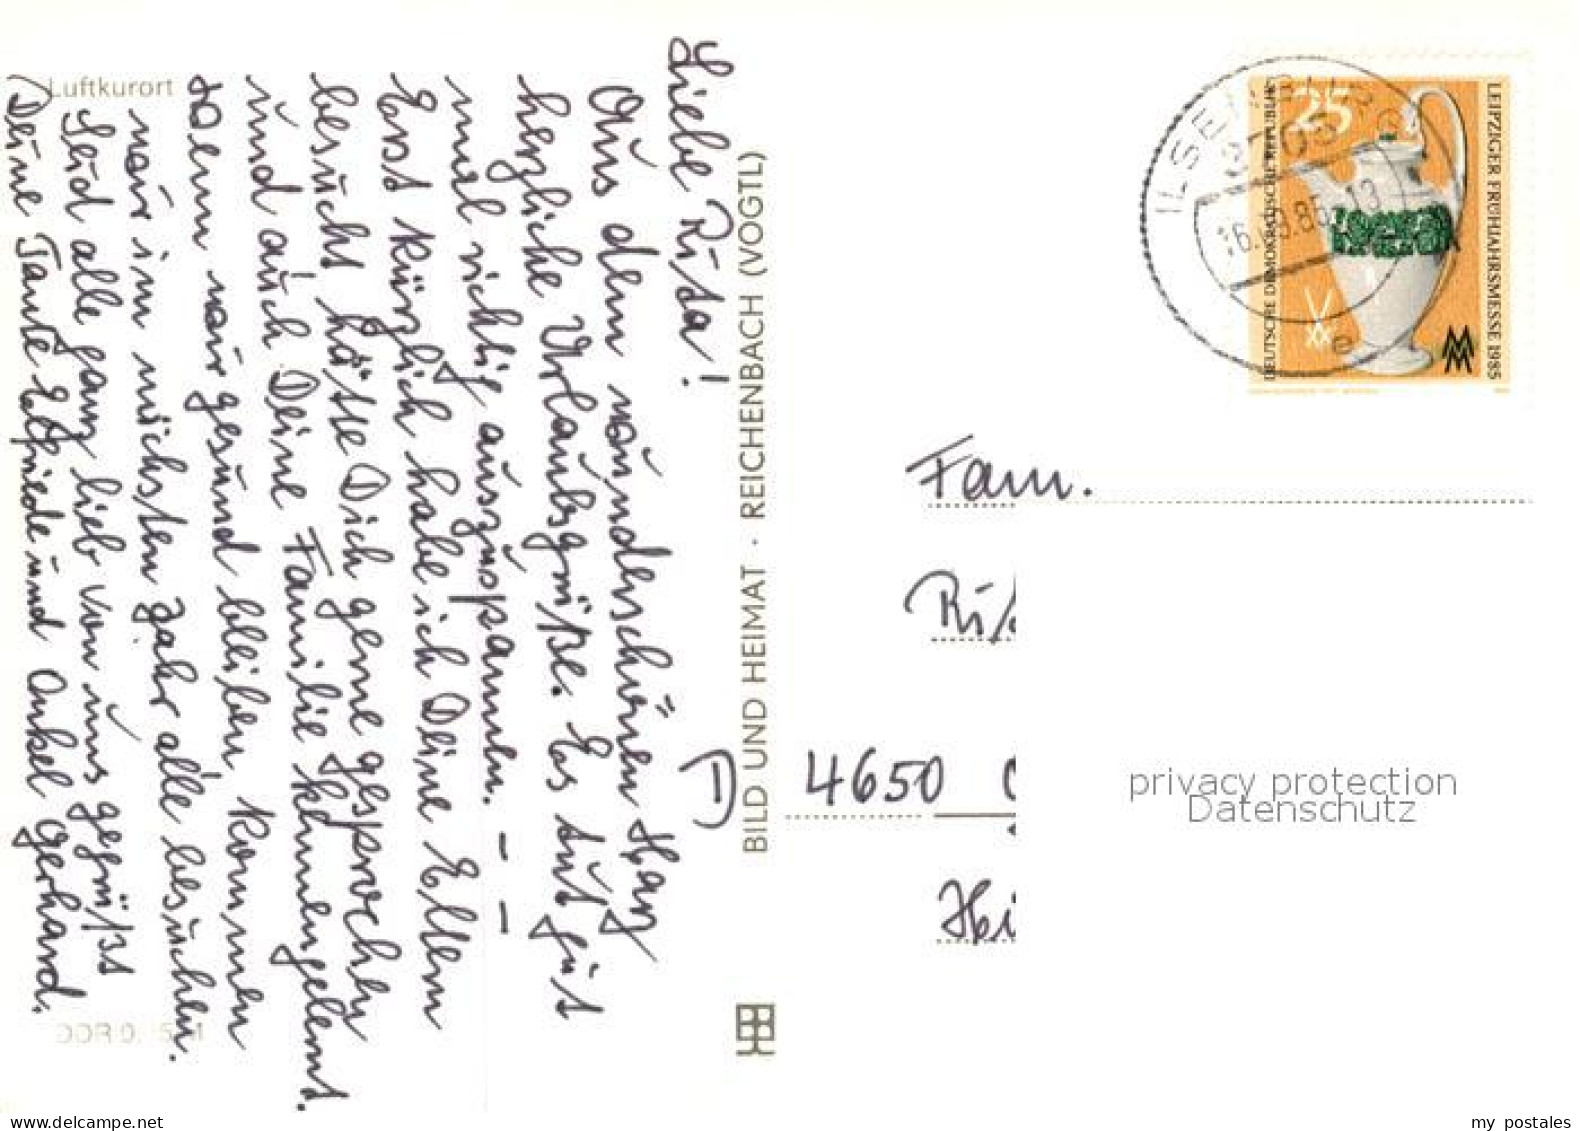 Luftkurort
Liebe Rita!
Aus dem wunderschönen Harz
herzliche Urlaubsgrüße. Es tut gut
mal richtig auszuspannen. – –
Erst kürzlich habe ich Deine Eltern
besucht hätte Dich gerne gesprochen
und auch Deine Familie kennengelernt.
Wenn wir gesund bleiben kommen
wir im nächsten Jahr alle besuchen.
Seid alle ganz lieb von uns gegrüßt
Deine Tante Elfriede und Onkel Gerhard.
BILD UND HEIMAT · REICHENBACH (VOGTL)
ILSENBURG
3705
16.09.86 13
e
25
DEUTSCHE DEMOKRATISCHE REPUBLIK
LEIPZIGER FRÜHJAHRSMESSE 1985
MM
Fam.
D 4650
privacy protection
Datenschutz
www.delcampe.net
my_postales